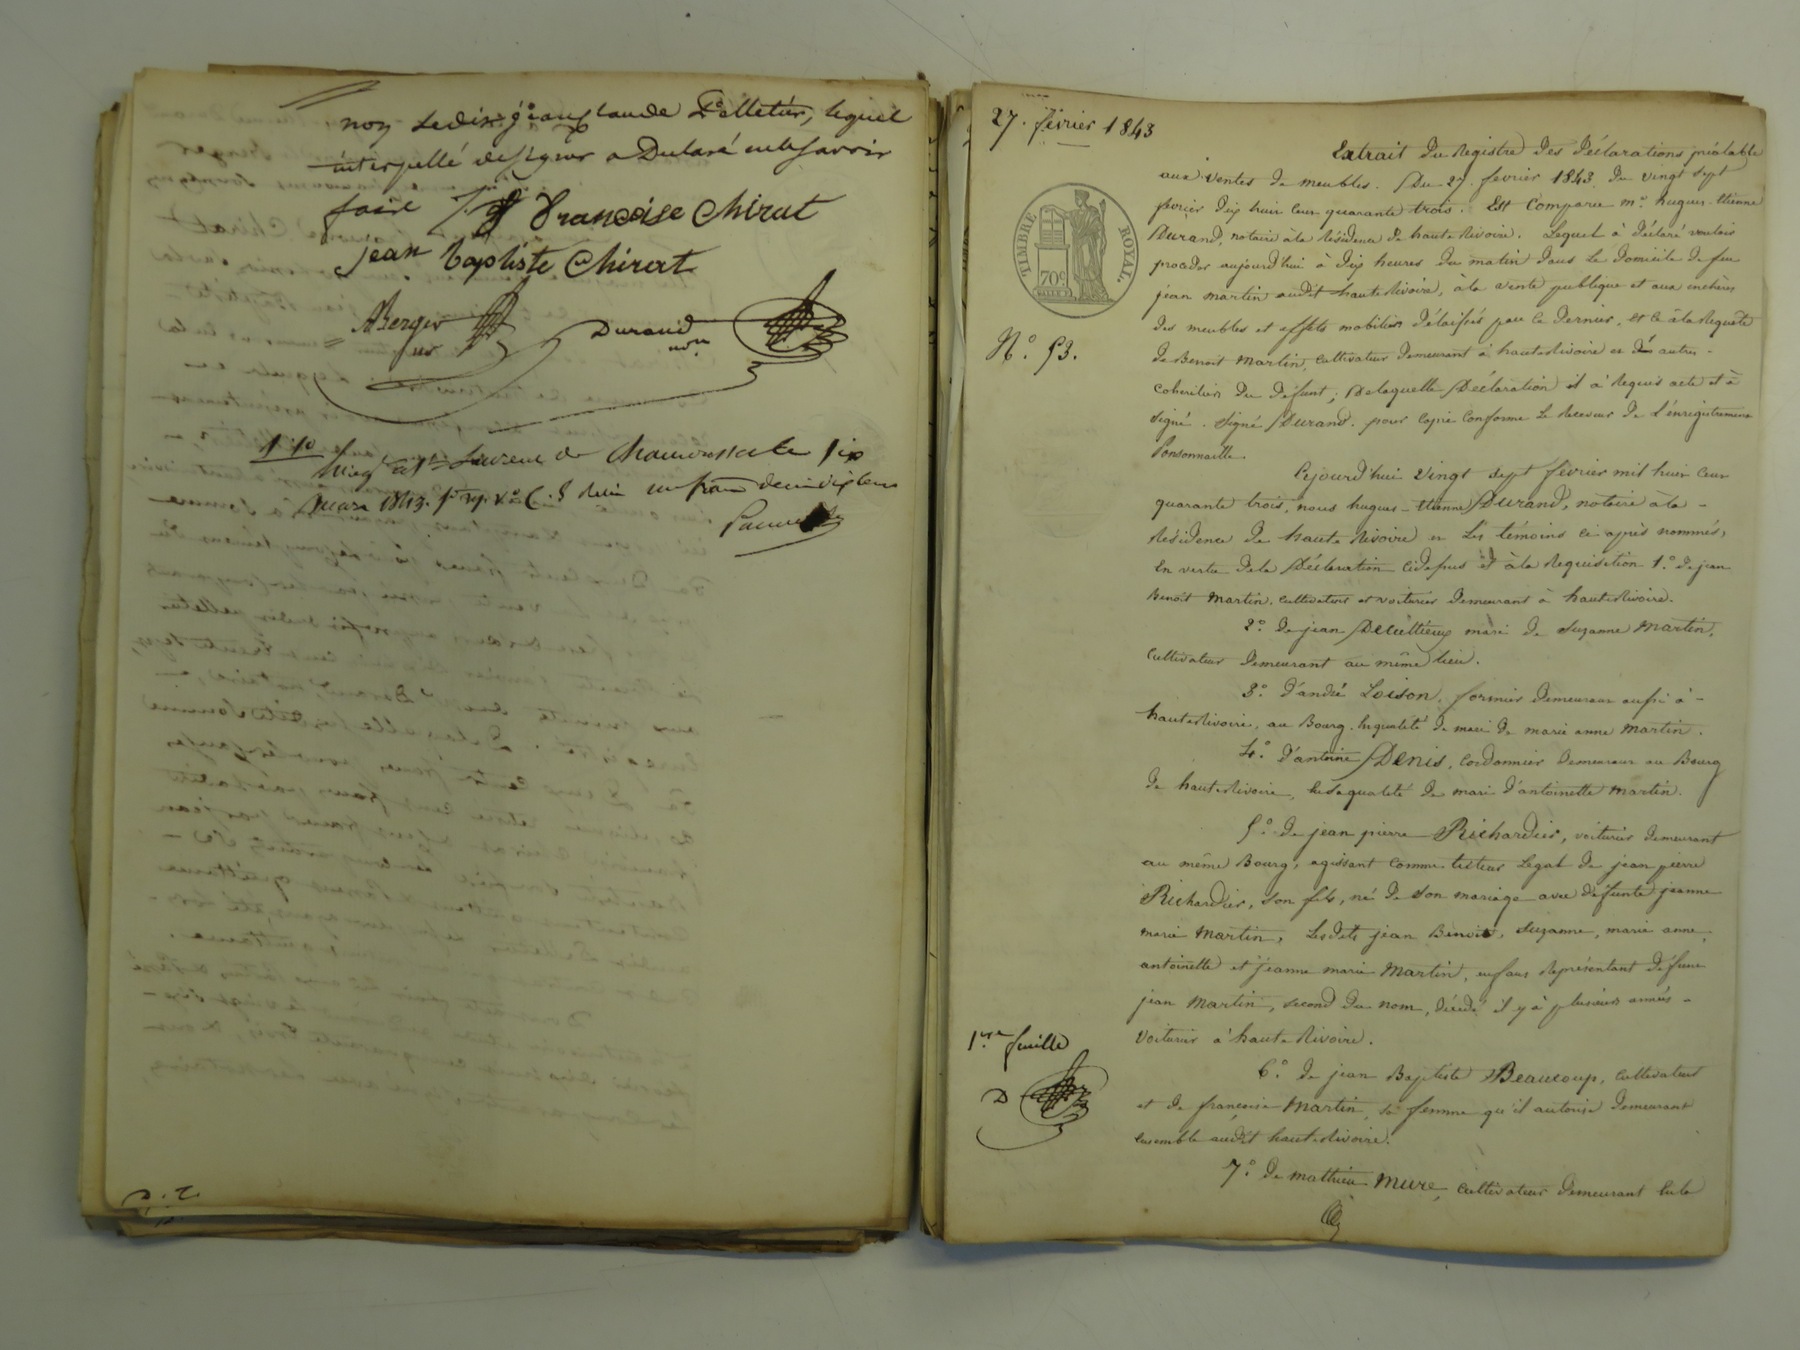 non ledit jean claude Pelletier, lequel
interpellé de signer a Declaré ne le savoir
faire
françoise Chirat
jean baptiste Chirat
ABerger
Durand
nore
Enreg à St Laurent de Chamousset le six
Mars 1843. fo Vo C. 8 Reçu un franc décime dix cens
27. février 1843
TIMBRE ROYAL
70c
No. 53.
Extrait du Registre des déclarations préalable
aux ventes de meubles. Du 27. fevrier 1843. Du vingt sept
fevrier dix huit cent quarante trois. Est comparu me. hugues-étienne
Durand, notaire à la Résidence de haute Rivoire. Lequel à déclaré vouloir
procéder aujourd'hui à dix heures du matin dans le domicile de feu
jean martin audit haute Rivoire, à la vente publique et aux enchères
des meubles et effets mobiliers délaissés par ce dernier, et ce à la Requete
de Benoit Martin, cultivateur demeurant à haute Rivoire et autres -
coheritiers du defunt; de laquelle Déclaration il à Requis acte et à
signé. signé Durand. pour copie conforme le Receveur de l'enrégistrement
Ponsonnaille.
Cejourd'hui vingt sept février mil huit cent
quarante trois, nous hugues-étienne Durand, notaire à la -
Résidence de haute Rivoire et les témoins ci après nommés,
En vertu de la Déclaration cidessus et à la Requisition 1.o de jean
Benoit Martin, cultivateur et voiturier demeurant à haute Rivoire.
2.o de jean Decultieux mari de Suzanne Martin,
cultivateur demeurant au même lieu.
3.o d'andré Loison, fermier demeurant aussi à -
haute Rivoire, au Bourg, en qualité de mari de marie anne Martin.
4.o d'antoine Denis, cordonnier demeurant au Bourg
de haute Rivoire, en sa qualité de mari d'antoinette Martin.
5.o de jean pierre Richardier, voiturier demeurant
au même Bourg, agissant comme tuteur Légal de jean pierre
Richardier, son fils, né de son mariage avec défunte jeanne
marie Martin, Lesdits jean Benoit, Suzanne, marie anne,
antoinette et jeanne marie Martin, enfans Représentant défunt
jean Martin, second du nom, décédé il y à plusieurs années -
voiturier à haute Rivoire.
1ere feuille
D
6.o de jean Baptiste Beaucoup, cultivateur
et de françoise Martin, sa femme qu'il autorise demeurant
ensemble audit haute Rivoire.
7.o de mathieu Mure, cultivateur demeurant en la